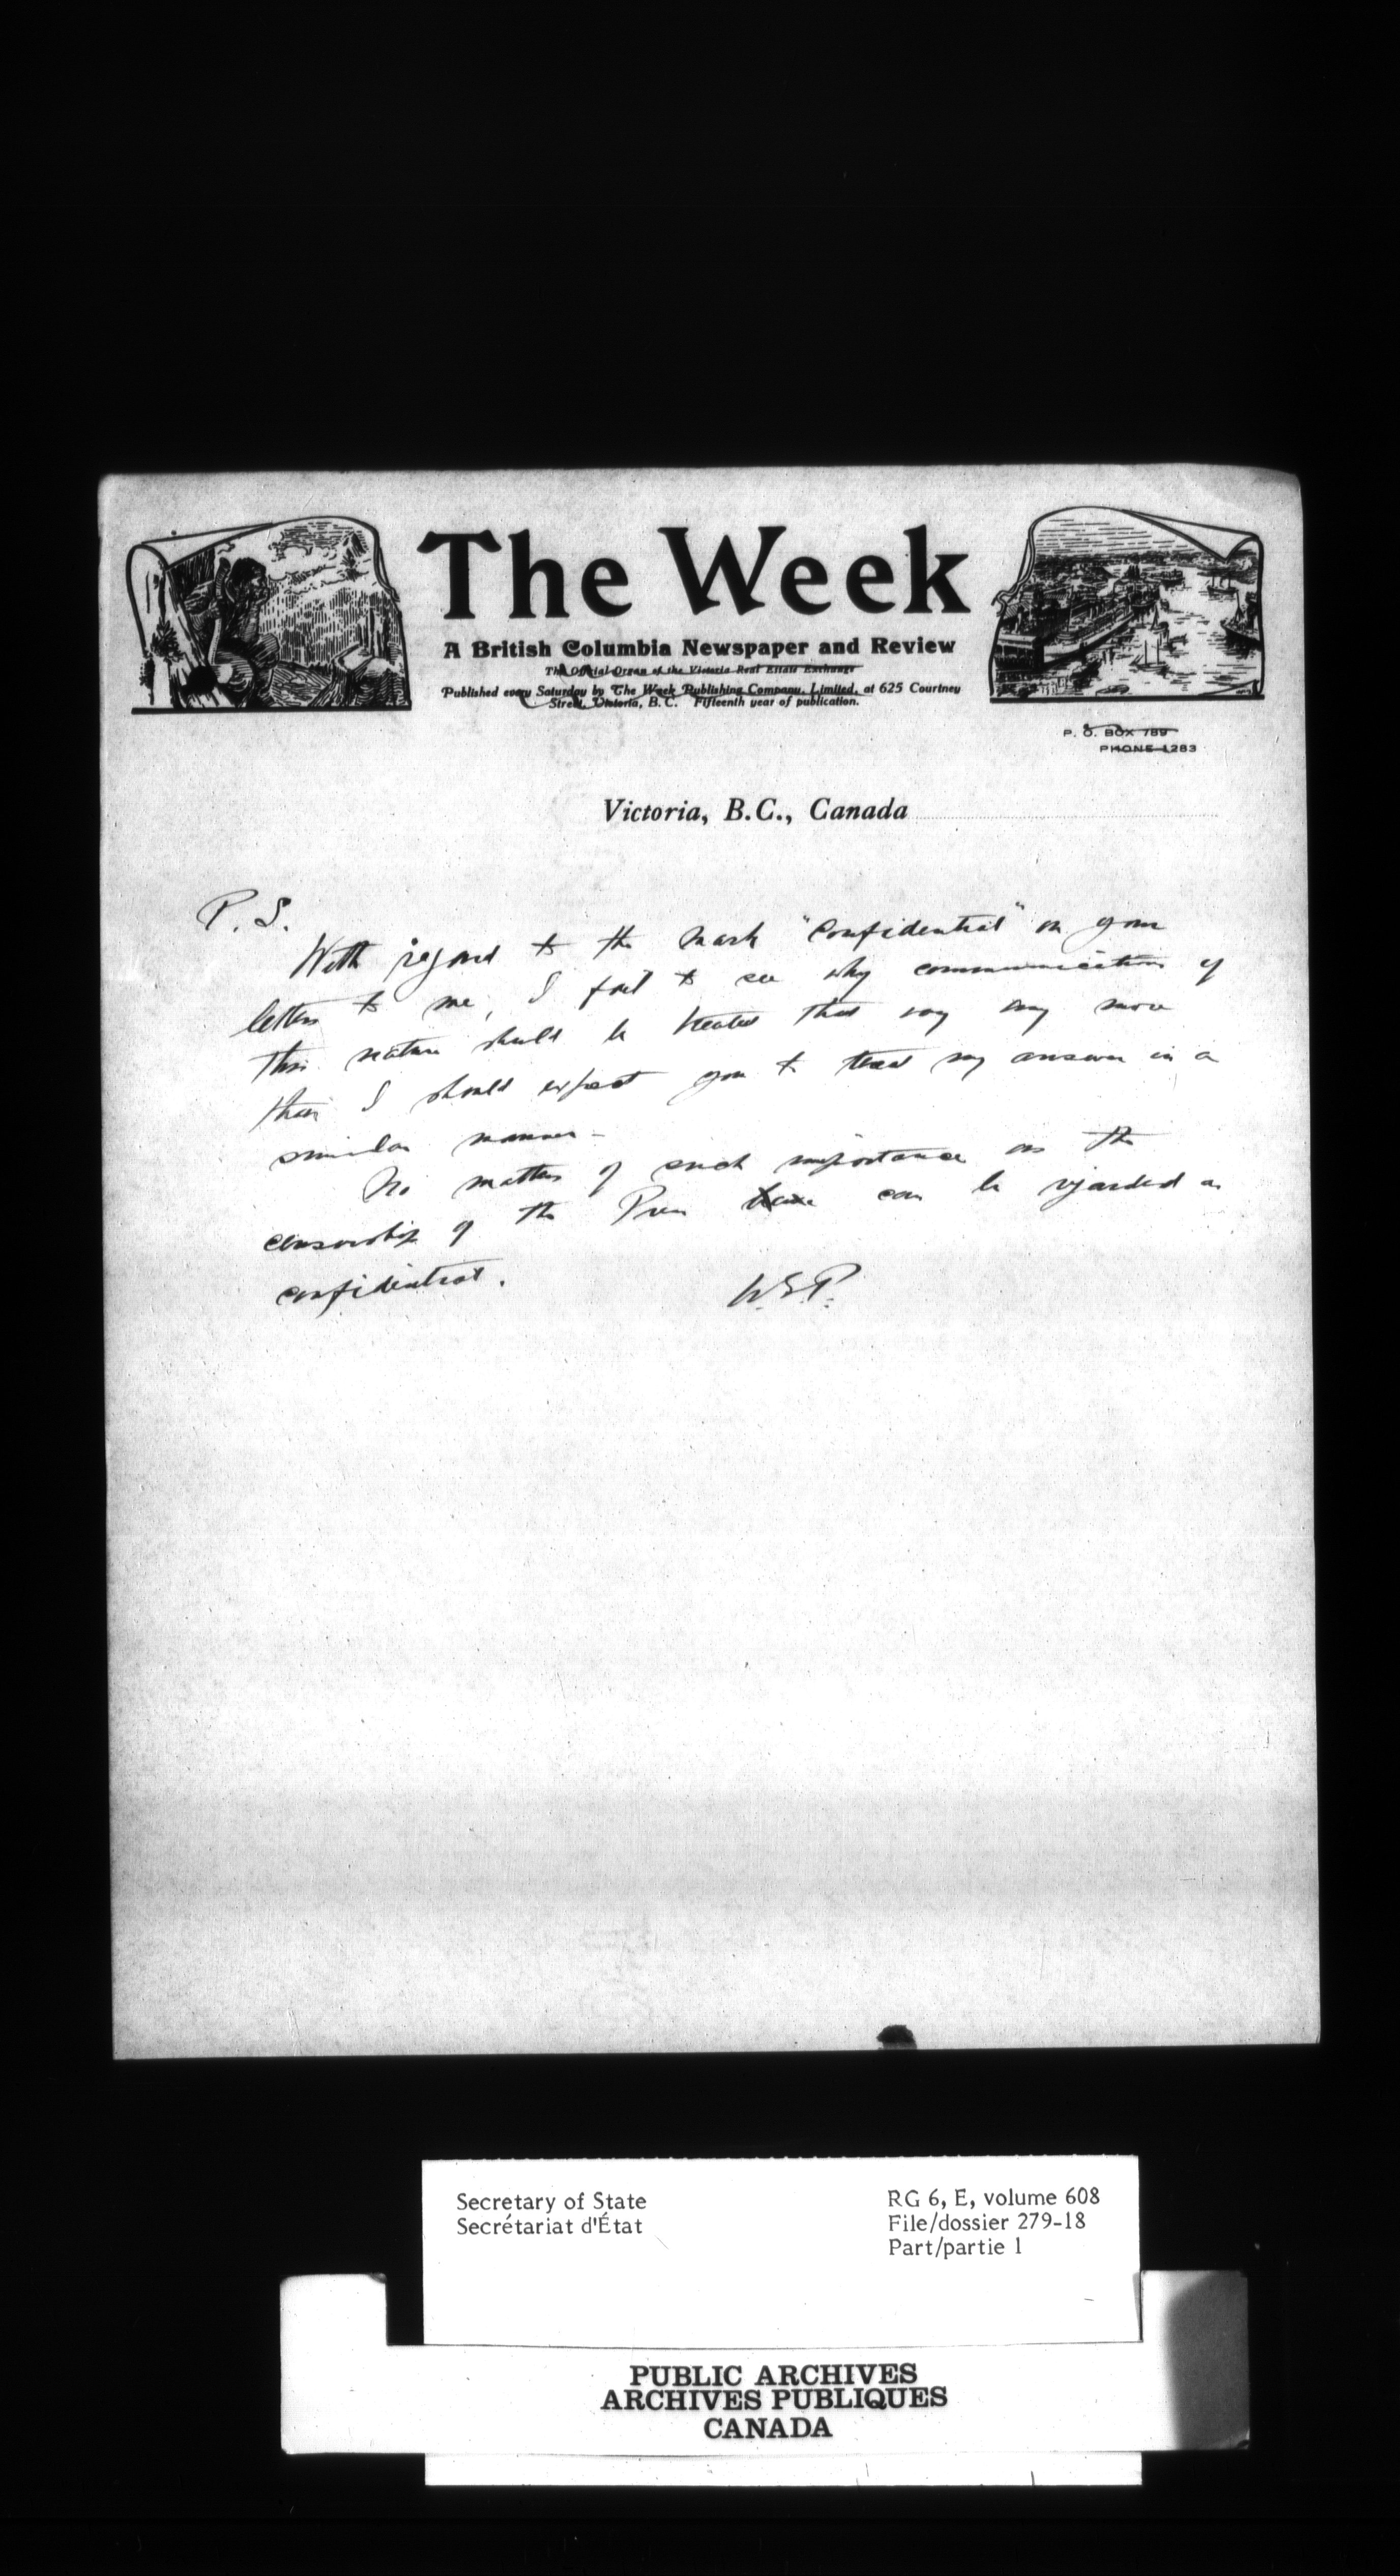 The Week
A British Columbia Newspaper and Review
The Official Organ of the Victoria Real Estate Exchange
Published every Saturday by The Week Publishing Company, Limited, at 625 Courtney
Street, Victoria, B.C. Fifteenth year of publication.
P. O. BOX 789
PHONE 1283
Victoria, B.C., Canada
P.S.
With regard to the mark "Confidential" on your
letters to me, I fail to see why communications of
this nature should be treated that way any more
than I should expect you to treat my answer in a
similar manner -
No matter of such importance as the
censorship of the Press can be regarded as
confidential.
W.E.P.
Secretary of State
Secrétariat d'État
RG 6, E, volume 608
File/dossier 279-18
Part/partie 1
PUBLIC ARCHIVES
ARCHIVES PUBLIQUES
CANADA